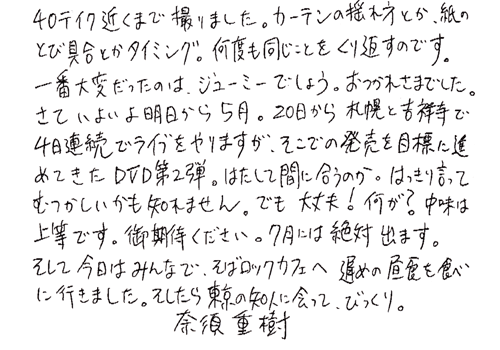 40テイク近くまで撮りました。カーテンの揺れ方とか、紙の
とび具合とかタイミング。何度も同じことをくり返すのです。
一番大変だったのは、ジューミーでしょう。おつかれさまでした。
さていよいよ明日から5月。20日から札幌と吉祥寺で
4日連続でライブをやりますが、そこでの発売を目標に進
めてきたDVD第2弾。はたして間に合うのか。はっきり言って
むつかしいかも知れません。でも大丈夫!何が?中味は
上等です。御期待ください。7月には絶対出ます。
そして今日はみんなで、そばロックカフェへ遅めの昼食を食べ
に行きました。そしたら東京の知人に会って、びっくり。
奈須重樹